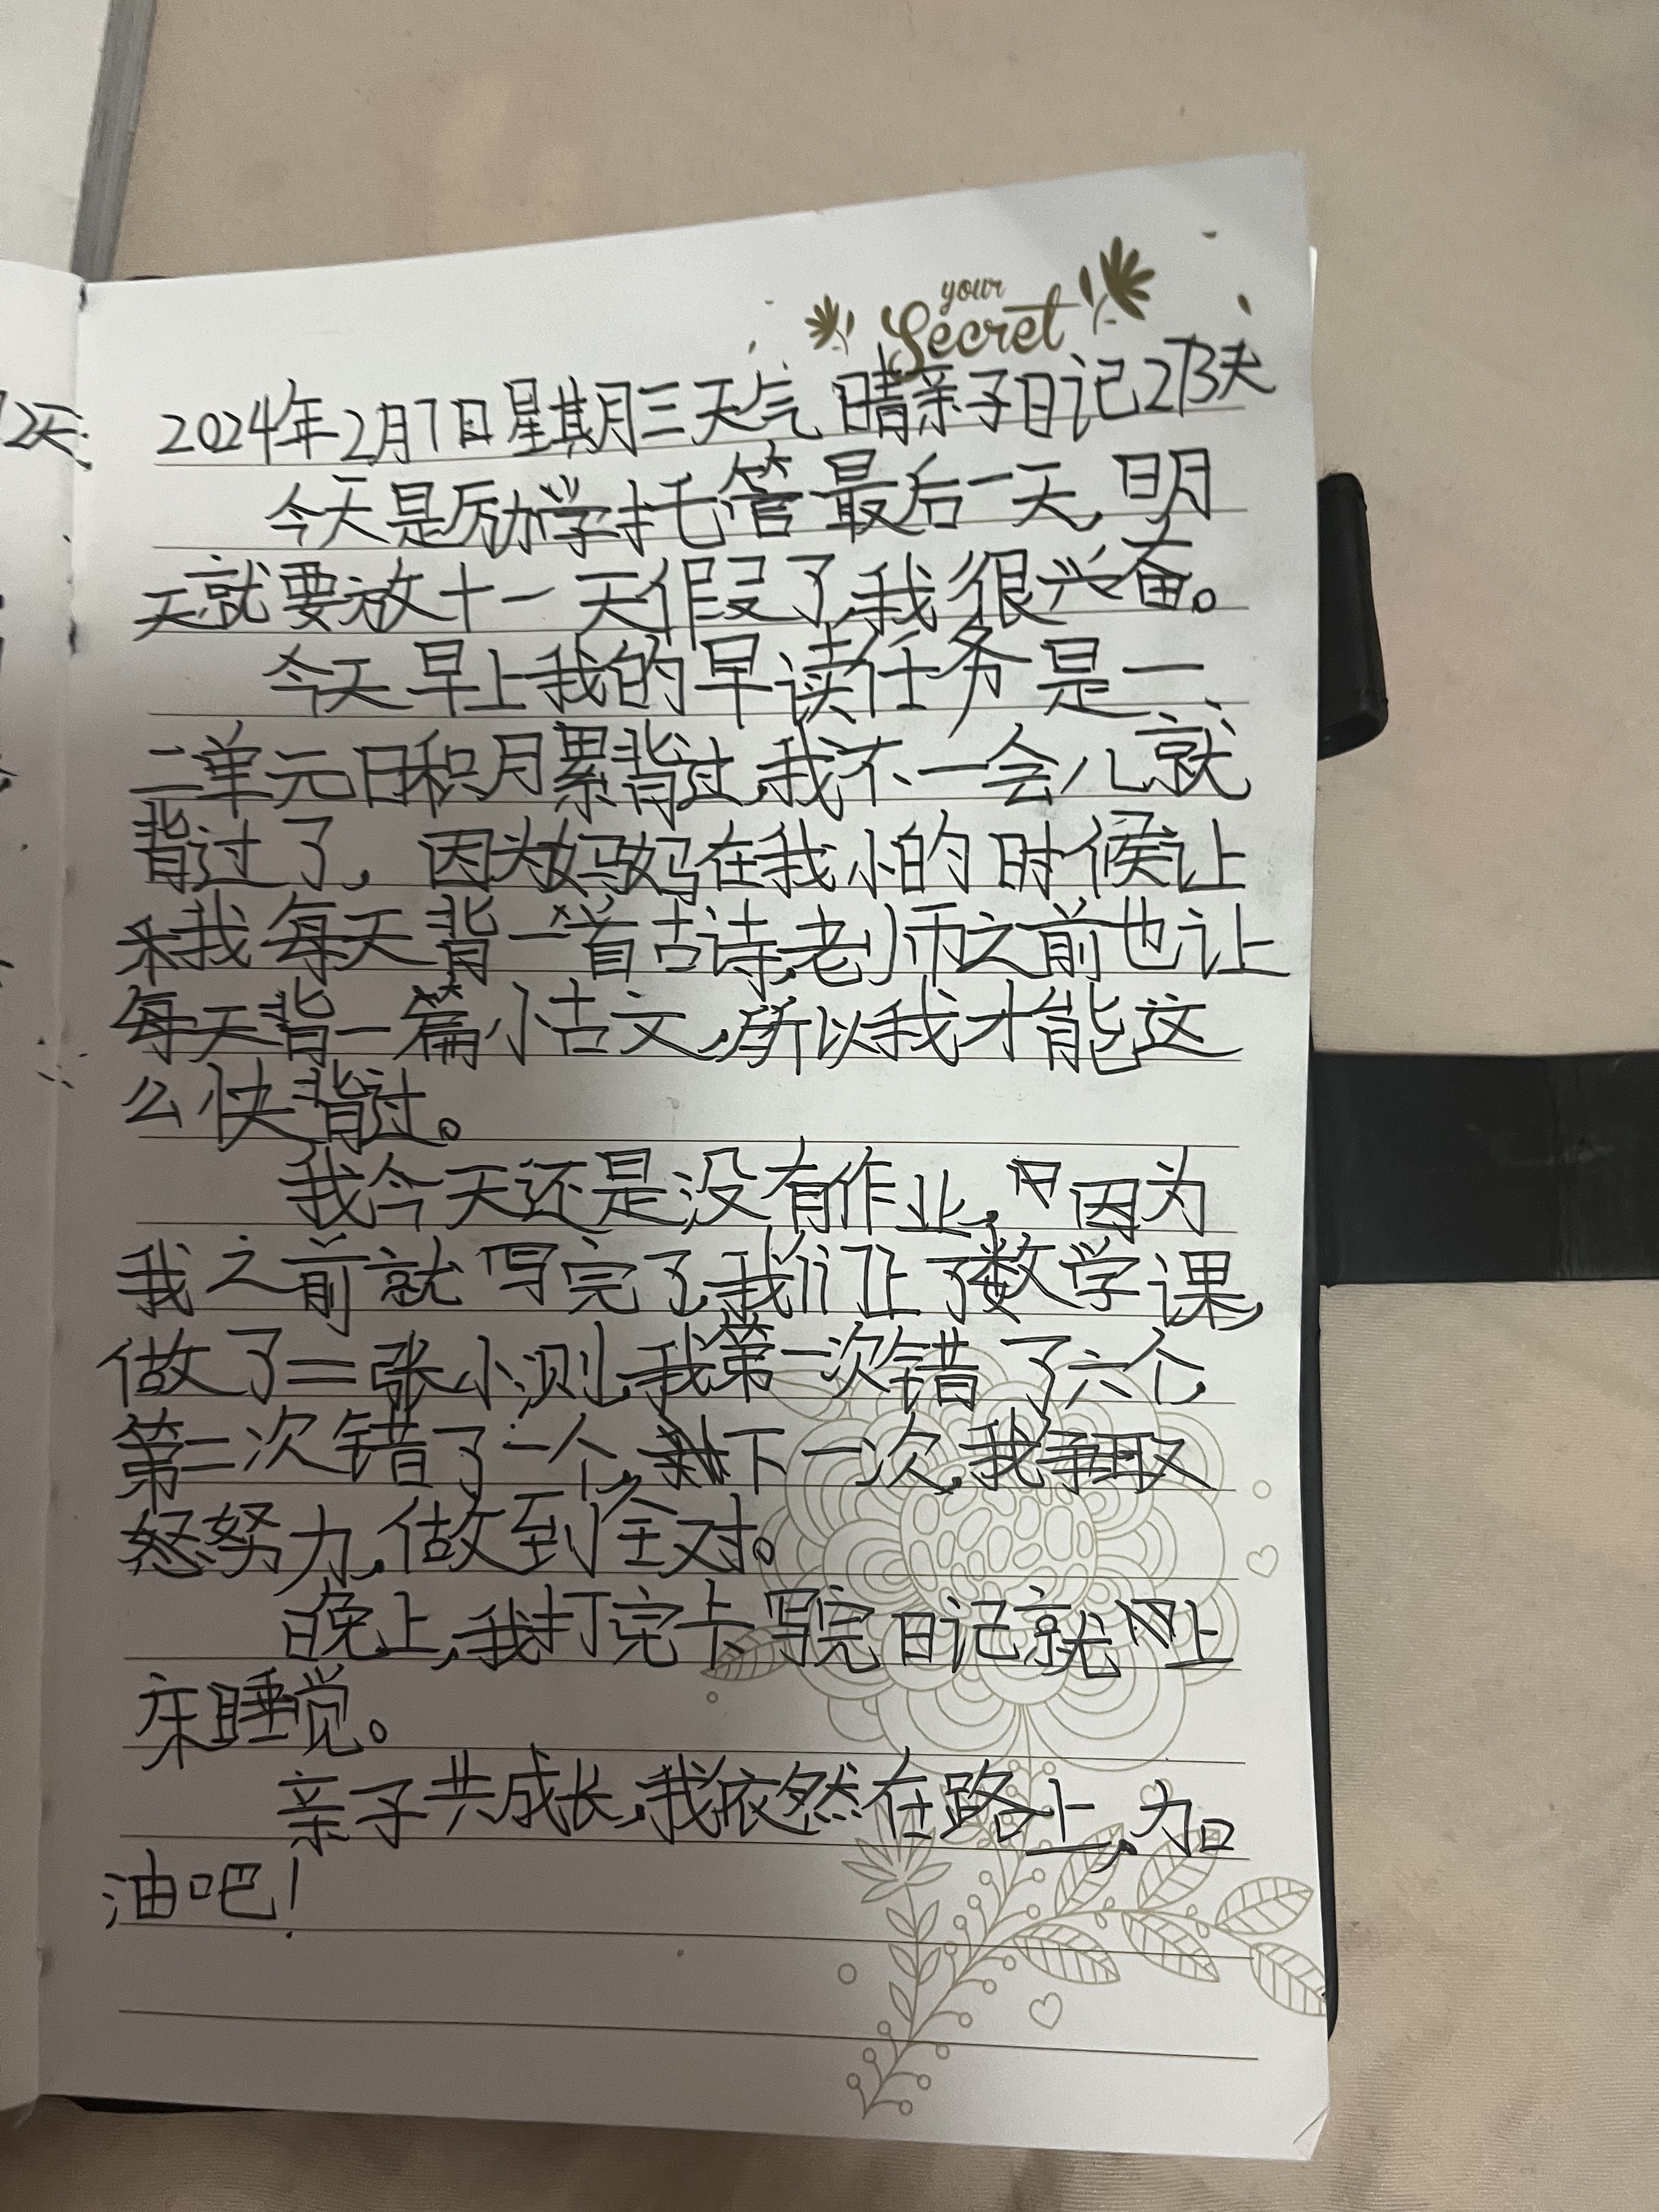 your
Secret
2天
2024年2月7日星期三天气晴亲子日记273天
今天是励学托管最后一天,明
天就要放十一天假了,我很兴奋。
今天早上我的早读任务是一、
二单元日积月累背过,我不一会儿就
背过了,因为妈妈在我小的时候让
我每天背一首古诗,老师之前也让
每天背一篇小古文,所以我才能这
么快背过。
我今天还是没有作业,因为
我之前就写完了,我们上了数学课,
做了二张小测,我第一次错了六个,
第二次错了一个,下一次,我争取
努力,做到全对。
晚上,我打完卡写完日记就上
床睡觉。
亲子共成长,我依然在路上,加
油吧!